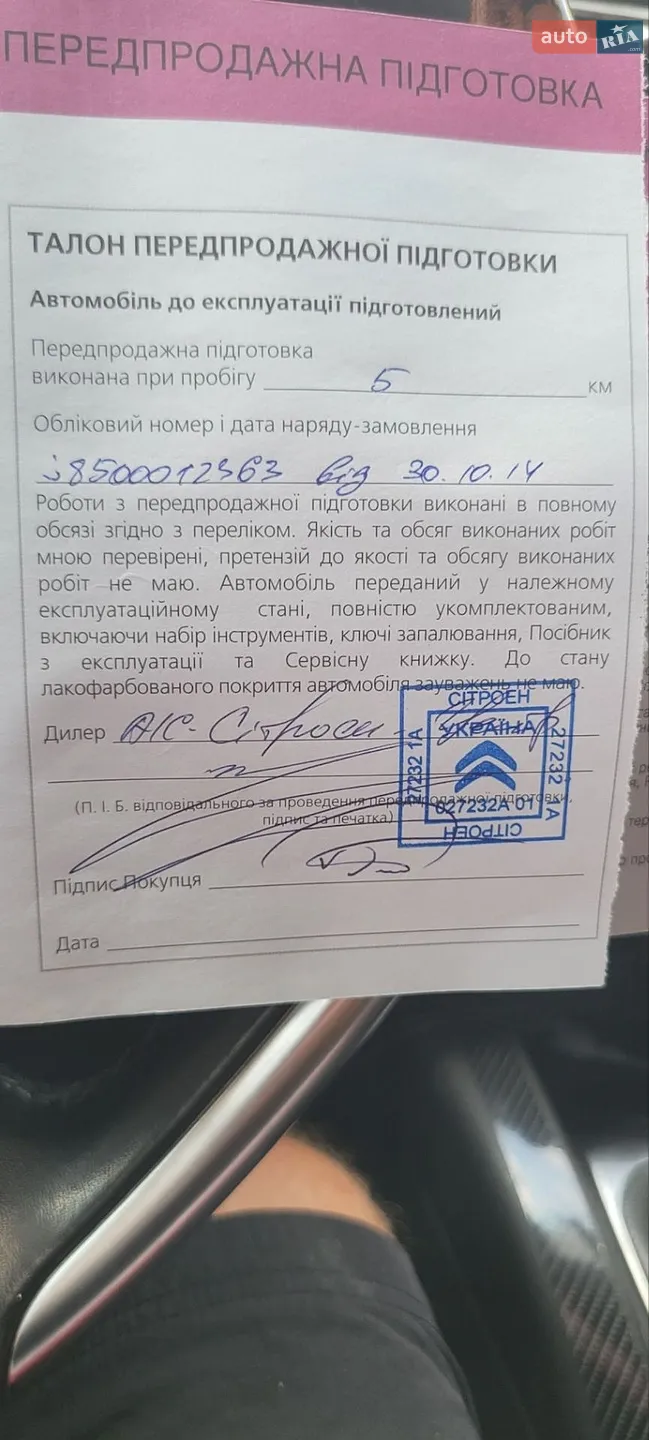 auto RIA.com
ПЕРЕДПРОДАЖНА ПІДГОТОВКА
ТАЛОН ПЕРЕДПРОДАЖНОЇ ПІДГОТОВКИ
Автомобіль до експлуатації підготовлений
Передпродажна підготовка
виконана при пробігу 5 км
Обліковий номер і дата наряду-замовлення
8500012363 від 30.10.14
Роботи з передпродажної підготовки виконані в повному
обсязі згідно з переліком. Якість та обсяг виконаних робіт
мною перевірені, претензій до якості та обсягу виконаних
робіт не маю. Автомобіль переданий у належному
експлуатаційному стані, повністю укомплектованим,
включаючи набір інструментів, ключі запалювання, Посібник
з експлуатації та Сервісну книжку. До стану
лакофарбованого покриття автомобіля зауважень не маю.
Дилер АІС-Сітроен
СІТРОЕН
УКРАЇНА
27232 1А
27232 1А
027232А 01
СІТРОЕН
(П. І. Б. відповідального за проведення передпродажної підготовки,
підпис та печатка)
Підпис Покупця
Дата